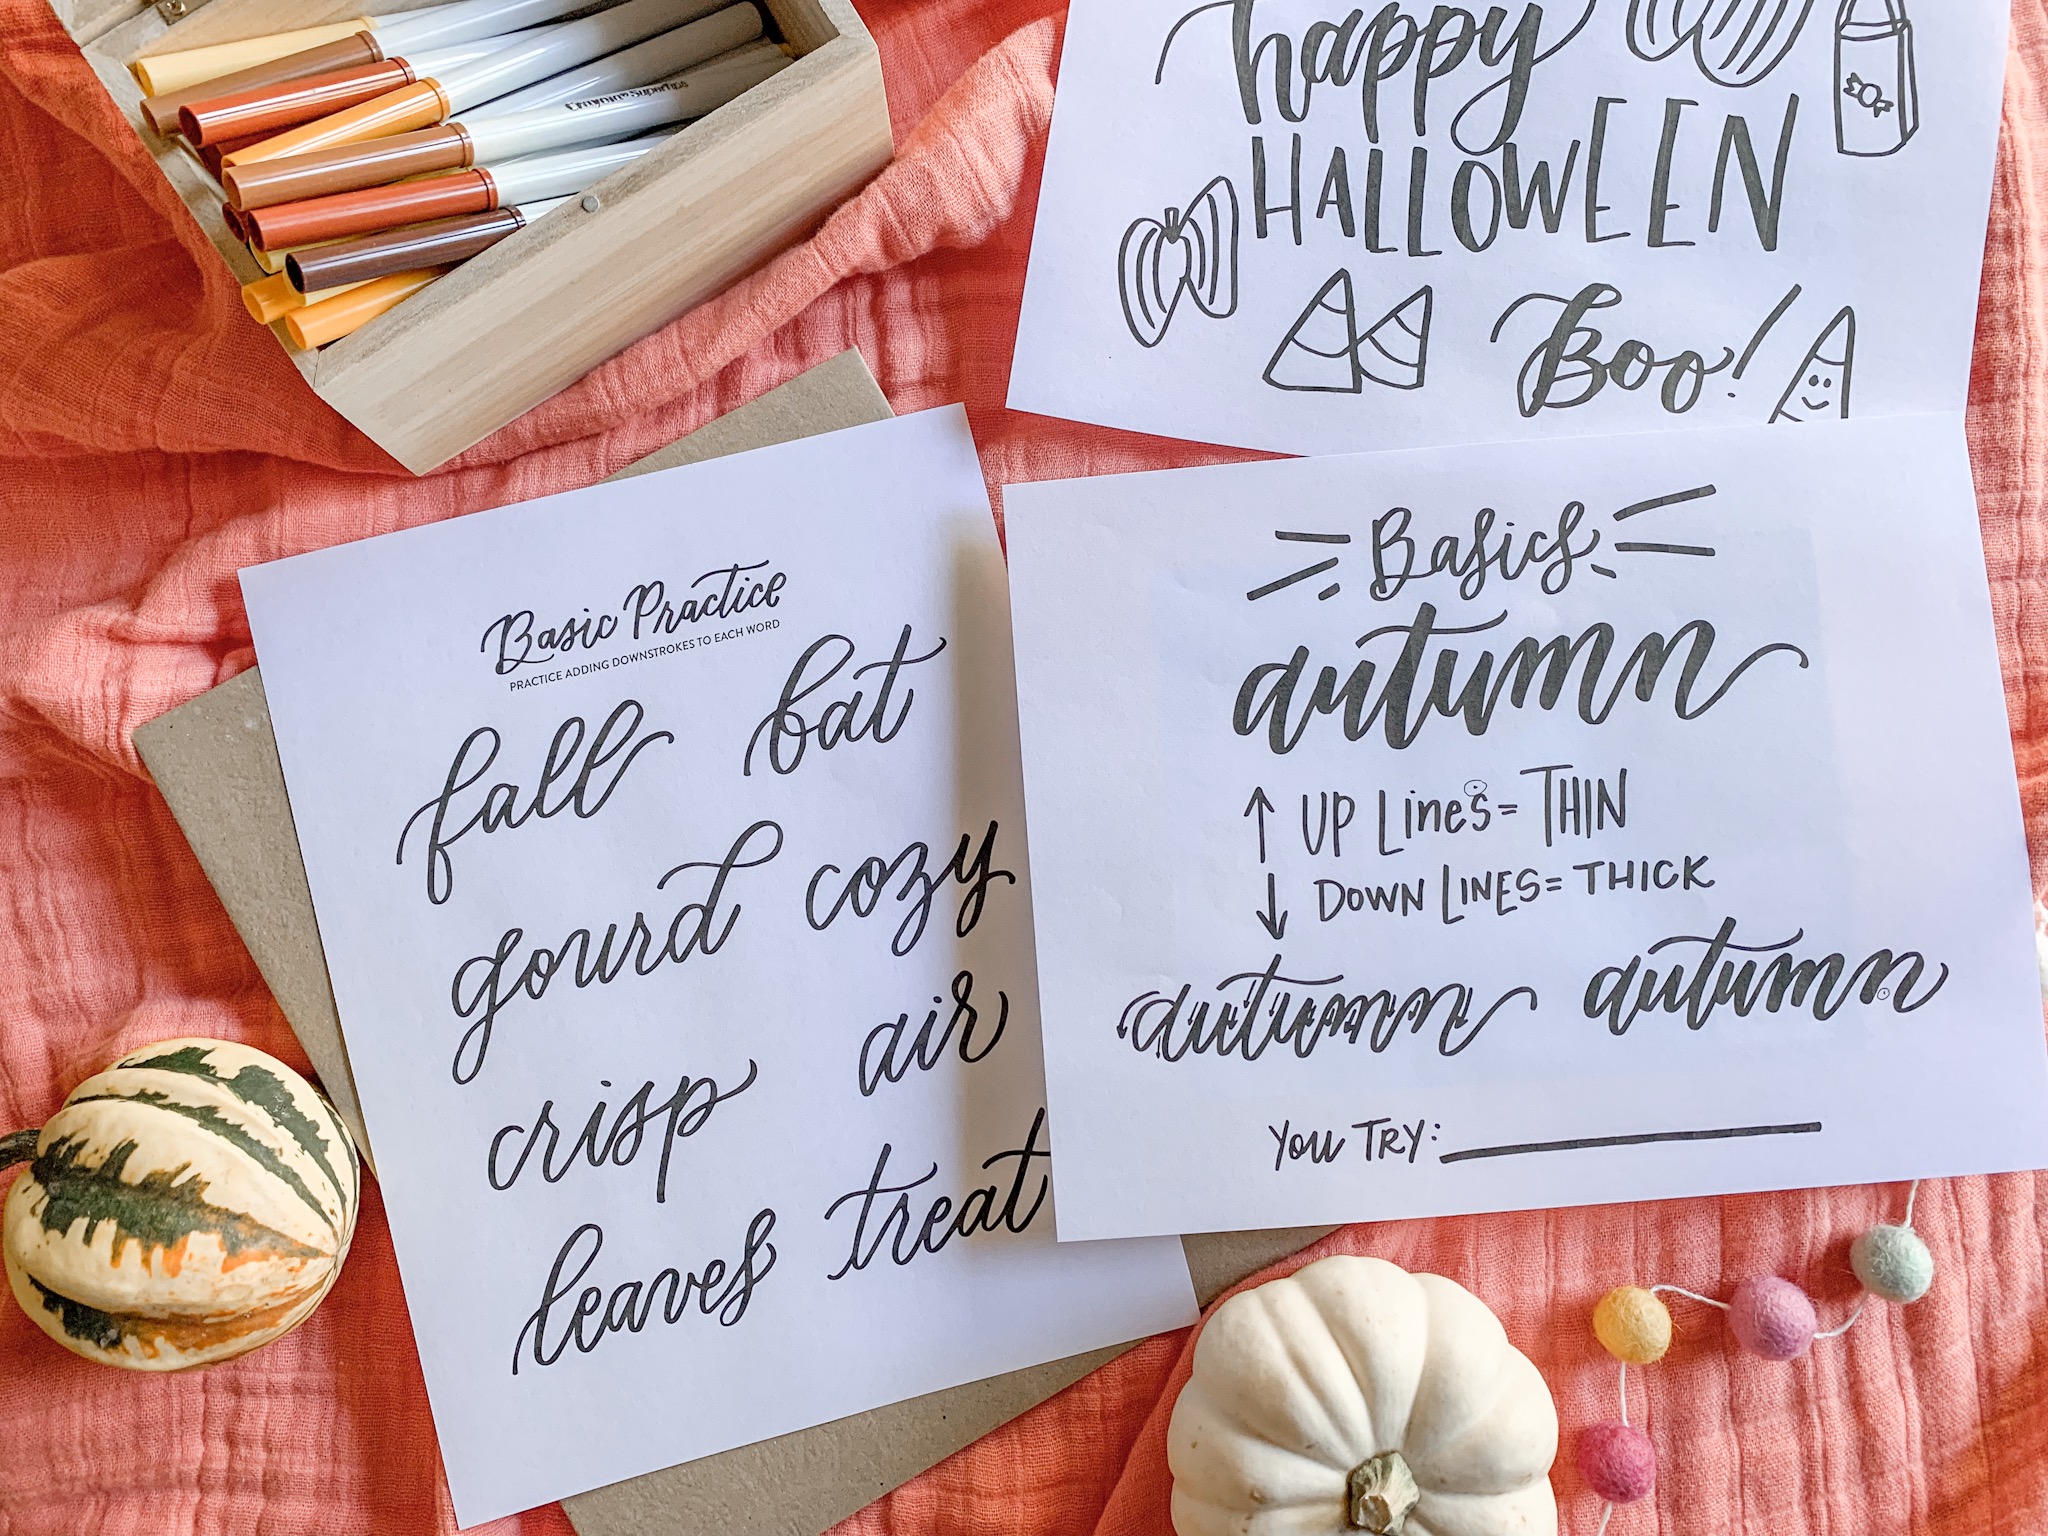 Crayola SuperTips
happy
HALLOWEEN
Boo!
Basic Practice
PRACTICE ADDING DOWNSTROKES TO EACH WORD
fall bat
gourd cozy
crisp air
leaves treat
Basics
autumn
↑ UP LINES = THIN
↓ DOWN LINES = THICK
autumn autumn
YOU TRY: